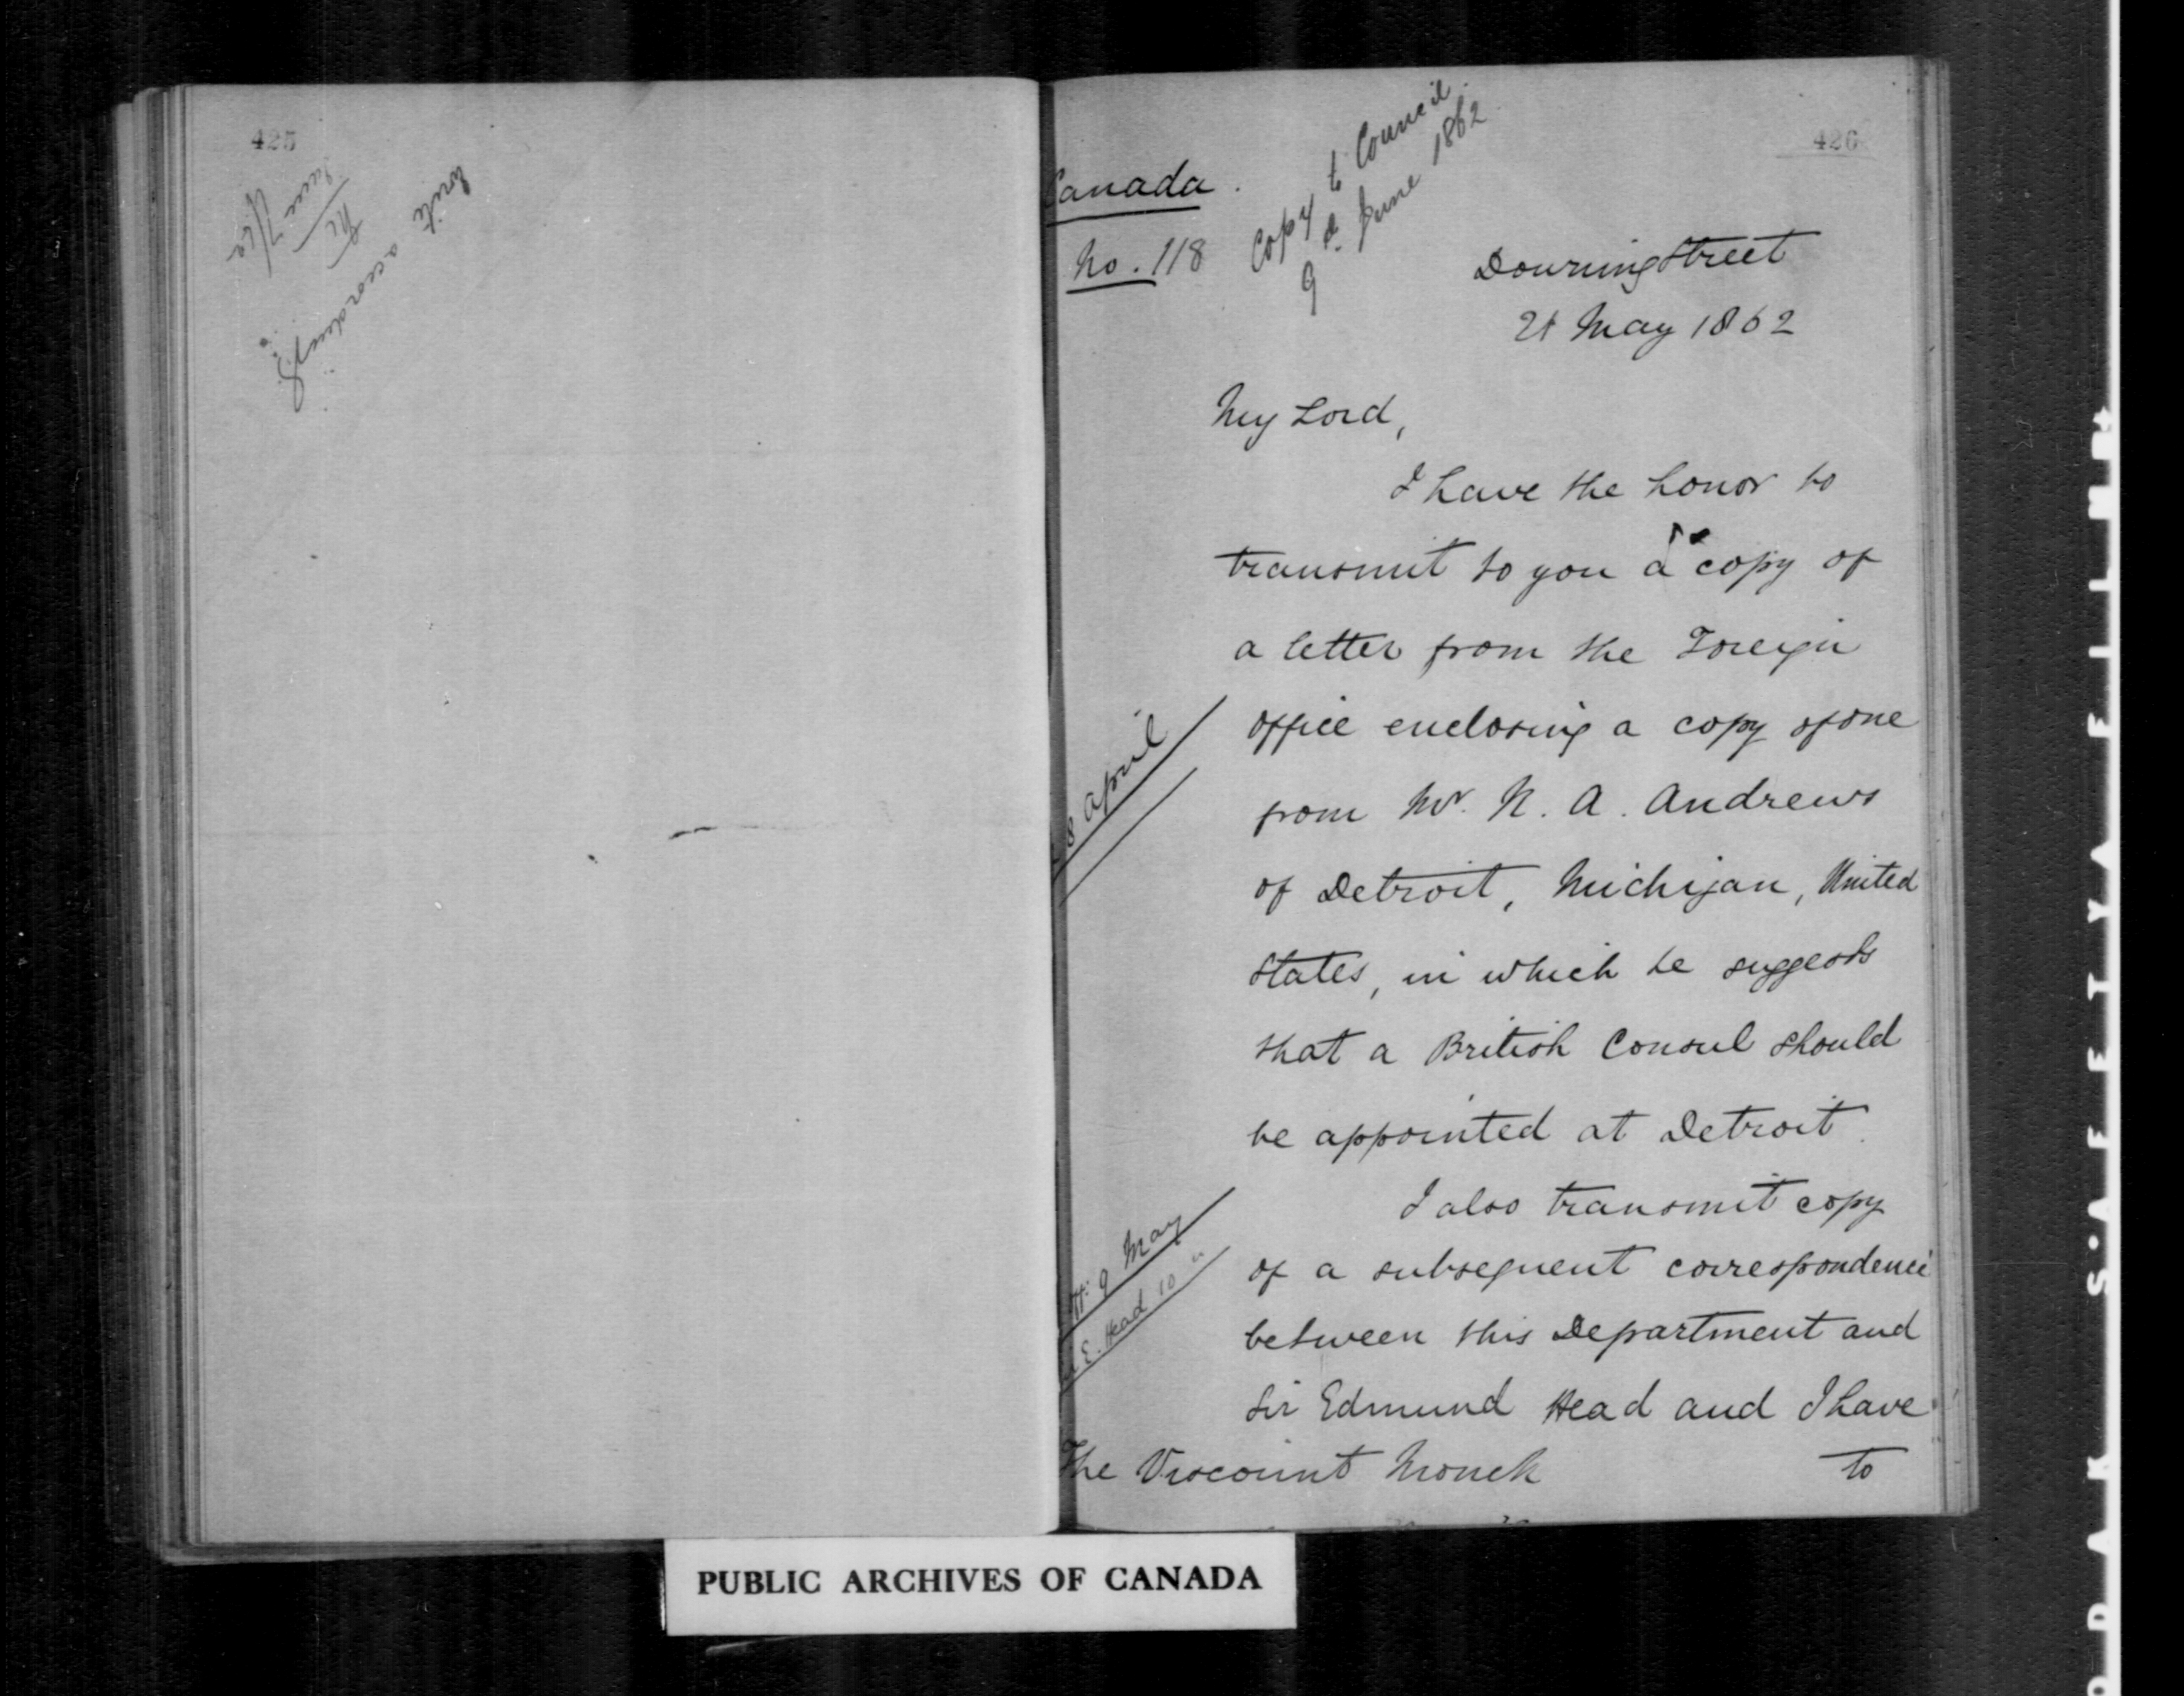 425
write according
June 7/62
426
Copy to Council
9 d. June 1862
Canada.
No. 118
Downing Street
21 May 1862
My Lord,
I have the honor to
transmit to you a copy of
a letter from the Foreign
office enclosing a copy of one
from Mr. N. A. Andrews
of Detroit, Michigan, United
States, in which he suggests
that a British Consul should
be appointed at Detroit.
8 April
I also transmit copy
of a subsequent correspondence
between this Department and
Sir Edmund Head and I have
9 May
E. Head 10 "
The Viscount Monck
to
PUBLIC ARCHIVES OF CANADA